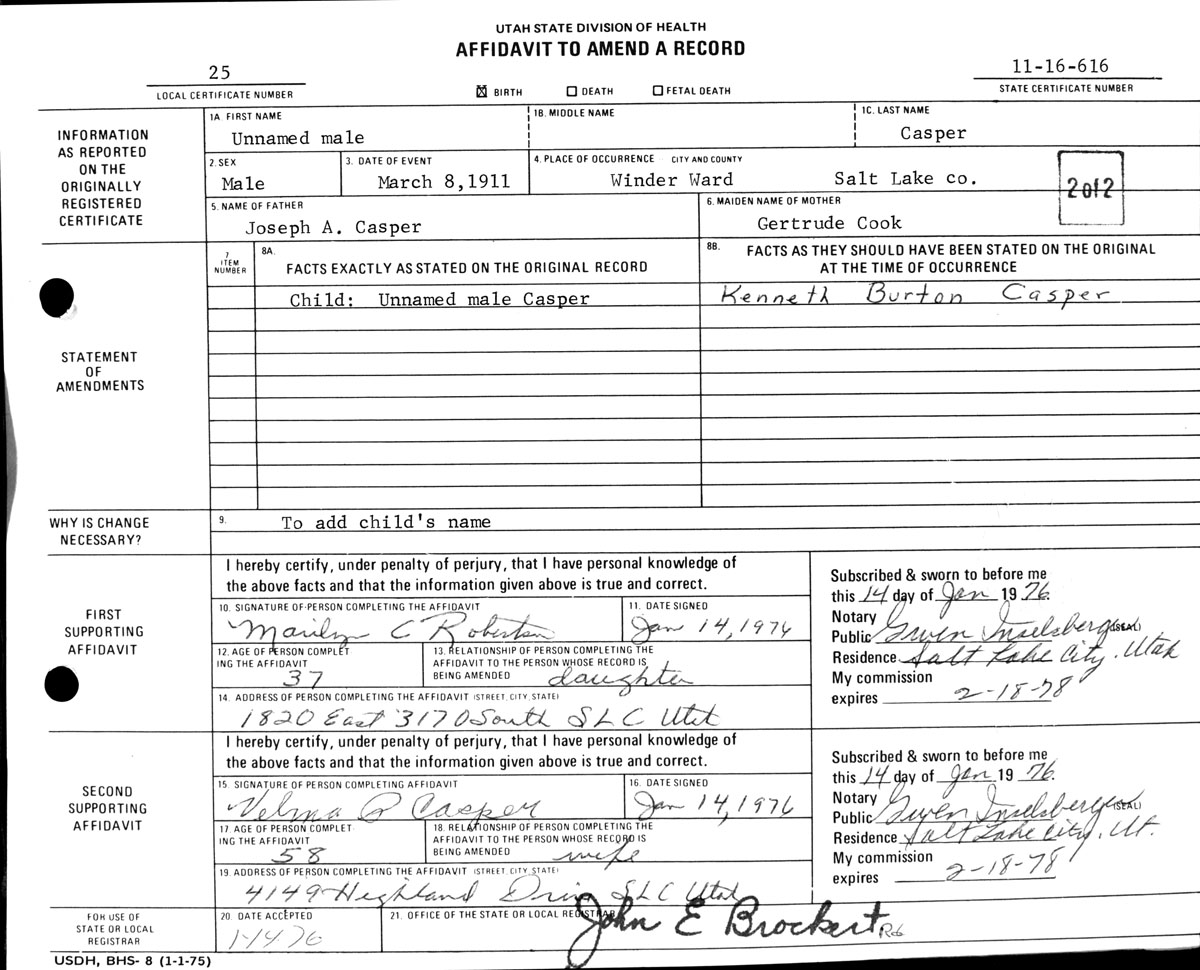 UTAH STATE DIVISION OF HEALTH
AFFIDAVIT TO AMEND A RECORD
25
LOCAL CERTIFICATE NUMBER
☒ BIRTH ☐ DEATH ☐ FETAL DEATH
11-16-616
STATE CERTIFICATE NUMBER
INFORMATION
AS REPORTED
ON THE
ORIGINALLY
REGISTERED
CERTIFICATE
1A FIRST NAME
Unnamed male
1B. MIDDLE NAME
1C. LAST NAME
Casper
2. SEX
Male
3. DATE OF EVENT
March 8,1911
4. PLACE OF OCCURRENCE CITY AND COUNTY
Winder Ward Salt Lake co.
2 of 2
5. NAME OF FATHER
Joseph A. Casper
6. MAIDEN NAME OF MOTHER
Gertrude Cook
STATEMENT
OF
AMENDMENTS
7
ITEM
NUMBER
8A.
FACTS EXACTLY AS STATED ON THE ORIGINAL RECORD
8B. FACTS AS THEY SHOULD HAVE BEEN STATED ON THE ORIGINAL
AT THE TIME OF OCCURRENCE
Child: Unnamed male Casper
Kenneth Burton Casper
WHY IS CHANGE
NECESSARY?
9. To add child's name
FIRST
SUPPORTING
AFFIDAVIT
I hereby certify, under penalty of perjury, that I have personal knowledge of
the above facts and that the information given above is true and correct.
10. SIGNATURE OF PERSON COMPLETING THE AFFIDAVIT
Marilyn C Robertson
11. DATE SIGNED
Jan 14, 1976
12. AGE OF PERSON COMPLET
ING THE AFFIDAVIT
37
13. RELATIONSHIP OF PERSON COMPLETING THE
AFFIDAVIT TO PERSON WHOSE RECORD IS
BEING AMENDED daughter
14. ADDRESS OF PERSON COMPLETING THE AFFIDAVIT (STREET, CITY, STATE)
1820 East 3170 South SLC Utah
Subscribed & sworn to before me
this 14 day of Jan 19 76.
Notary
Public Gwen Inselsberger (SEAL)
Residence Salt Lake City, Utah
My commission
expires 2-18-78
SECOND
SUPPORTING
AFFIDAVIT
I hereby certify, under penalty of perjury, that I have personal knowledge of
the above facts and that the information given above is true and correct.
15. SIGNATURE OF PERSON COMPLETING AFFIDAVIT
Velma P Casper
16. DATE SIGNED
Jan 14, 1976
17. AGE OF PERSON COMPLET
ING THE AFFIDAVIT
58
18. RELATIONSHIP OF PERSON COMPLETING THE
AFFIDAVIT TO PERSON WHOSE RECORD IS
BEING AMENDED wife
19. ADDRESS OF PERSON COMPLETING THE AFFIDAVIT (STREET, CITY, STATE)
4149 Highland Drive SLC Utah
Subscribed & sworn to before me
this 14 day of Jan 19 76.
Notary
Public Gwen Inselsberger (SEAL)
Residence Salt Lake City, Ut.
My commission
expires 2-18-78
FOR USE OF
STATE OR LOCAL
REGISTRAR
20. DATE ACCEPTED
1-14-76
21. OFFICE OF THE STATE OR LOCAL REGISTRAR
John E Brockert
USDH, BHS- 8 (1-1-75)